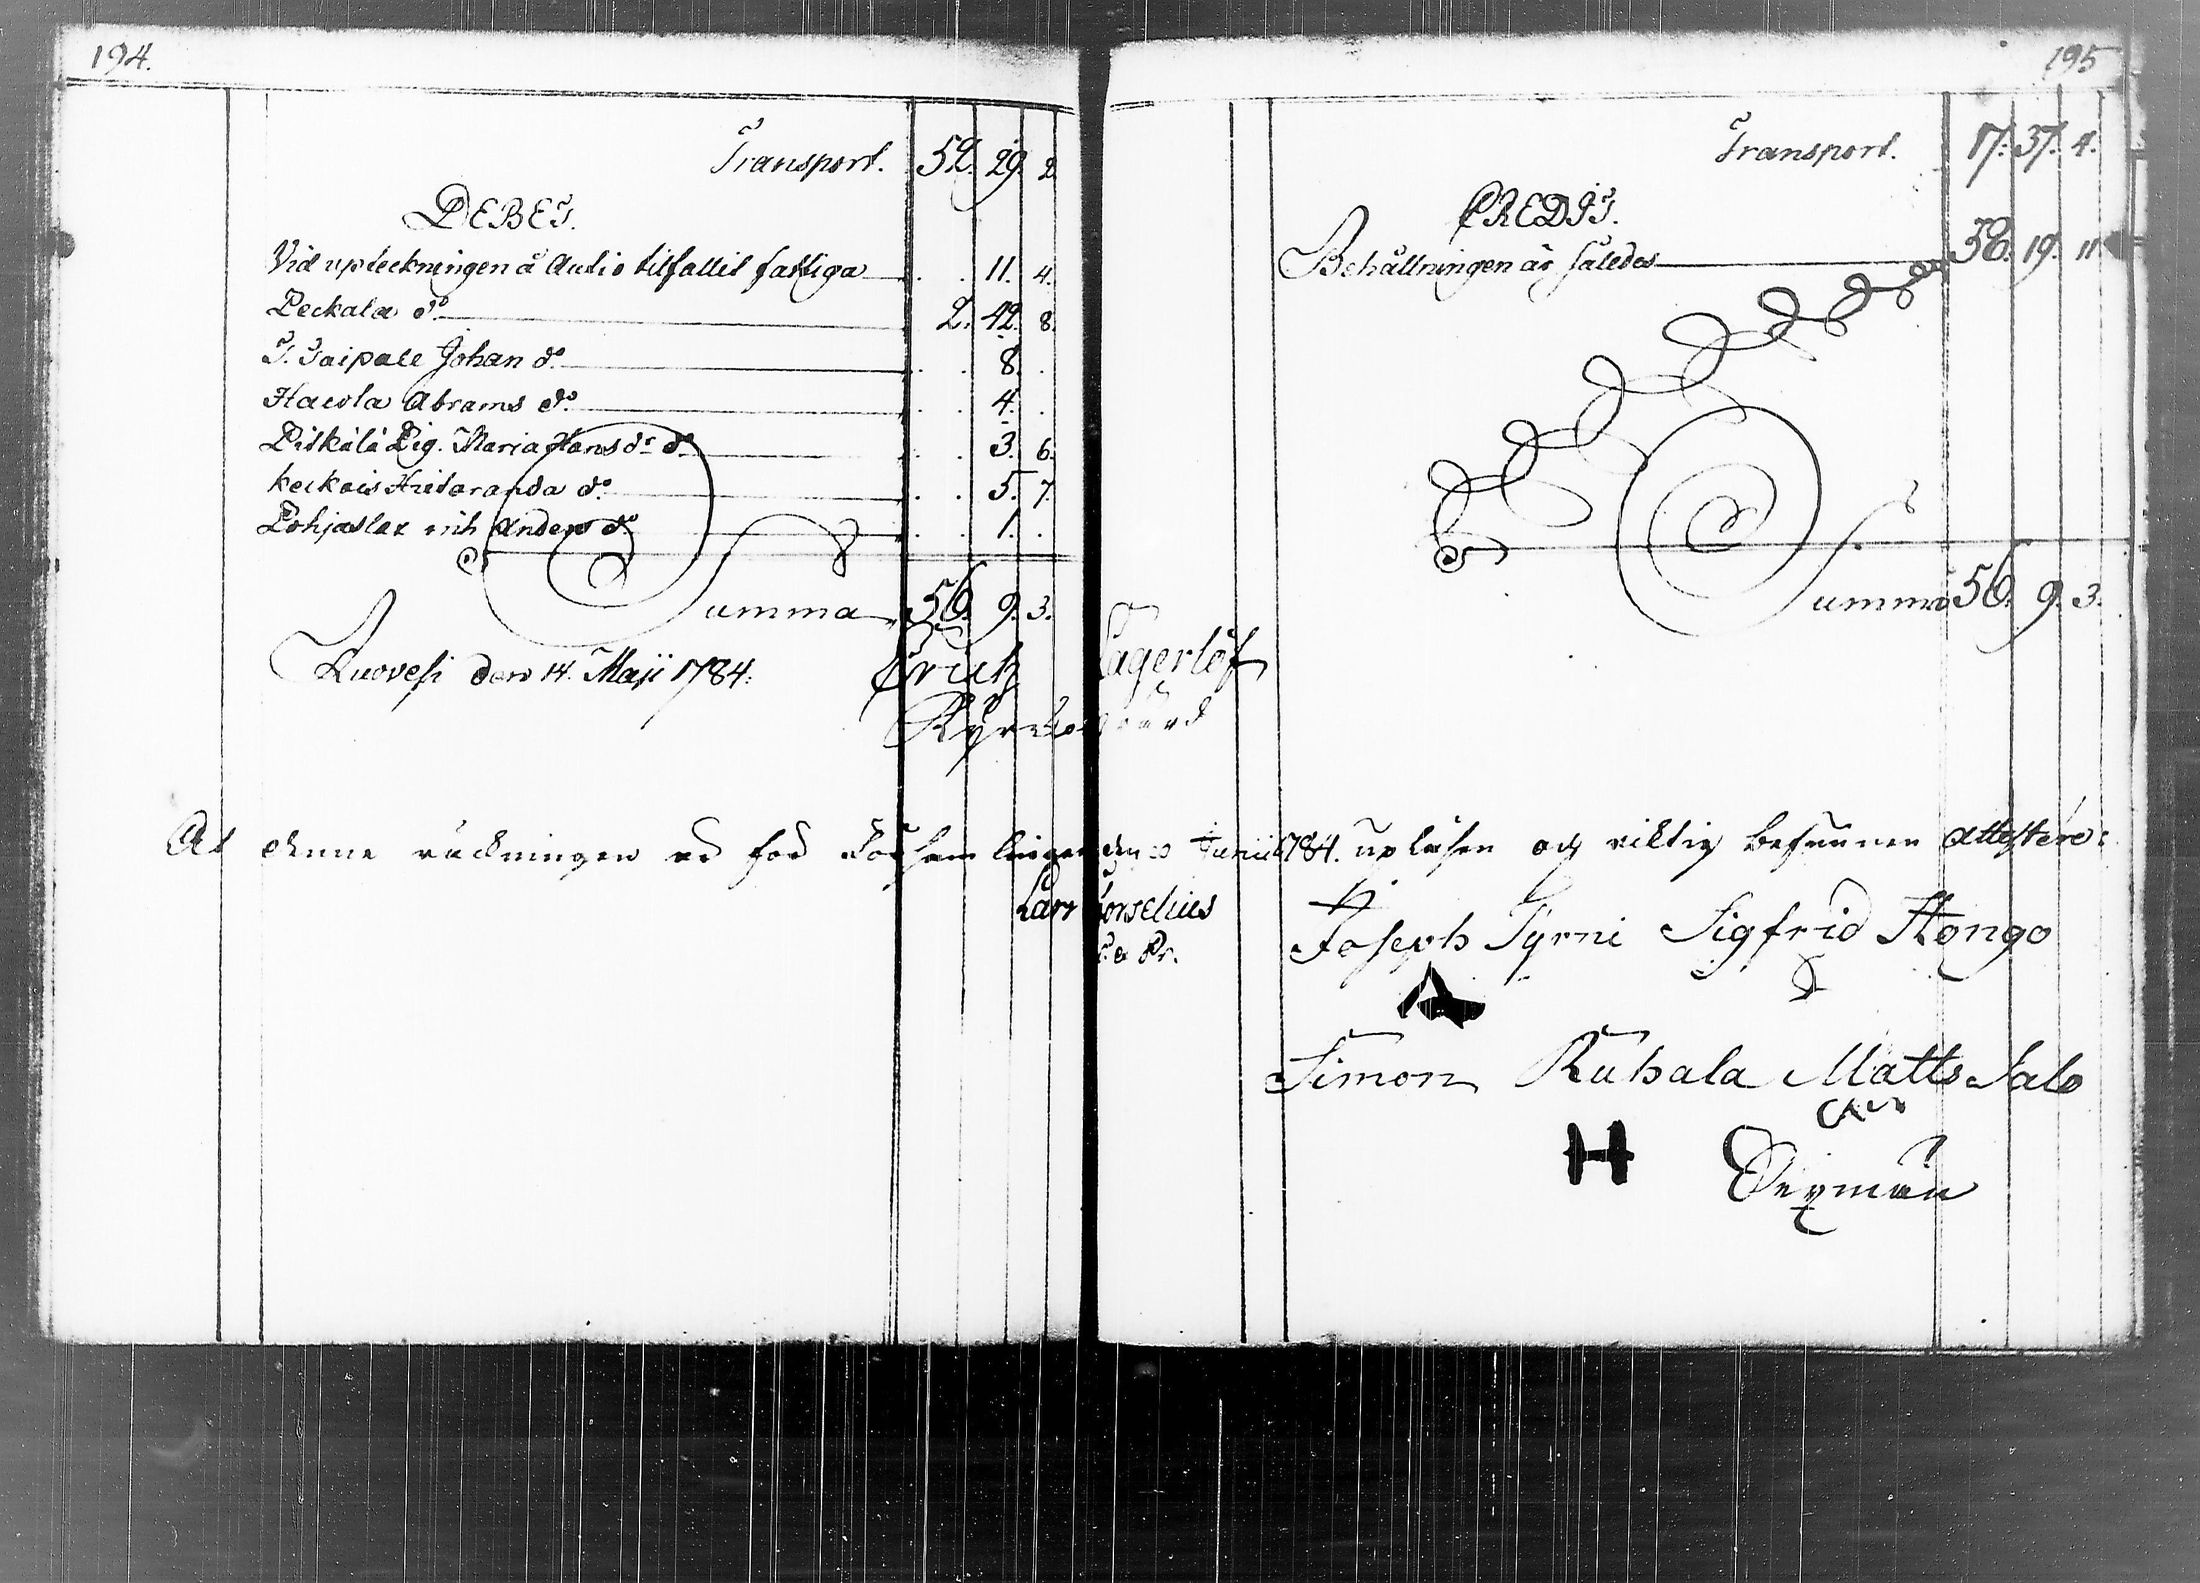 194.
Transport. 52. 29. 2
DEBET.
Vid upteckningen å Autio tilfallit fattiga . . 11. 4.
Peckala do 2. 42. 8.
T. Taipale Johan do . . 8. .
Hacola Abrams do . . 4. .
Pitkälä Pig. Maria Hansdr do . . 3. 6.
keckois Hietaranda do . . 5. 7.
Pohjaslax Anders do . . 1. .
Summa 56. 9. 3.
Ruovesi den 14. Maji 1784. Erich Lagerlöf
Kyrkovärd
195
Transport. 17. 37. 4.
CREDIT.
Behållningen är således 38. 19. 11
Summa 56. 9. 3.
At denne räckningen är för Församlingen den Junii 1784. upläsen och riktig befunnen attesterar
Lars Forselius
Joseph Tyrni Sigfrid Hongo
Simon Ruhala Matts Salo
H